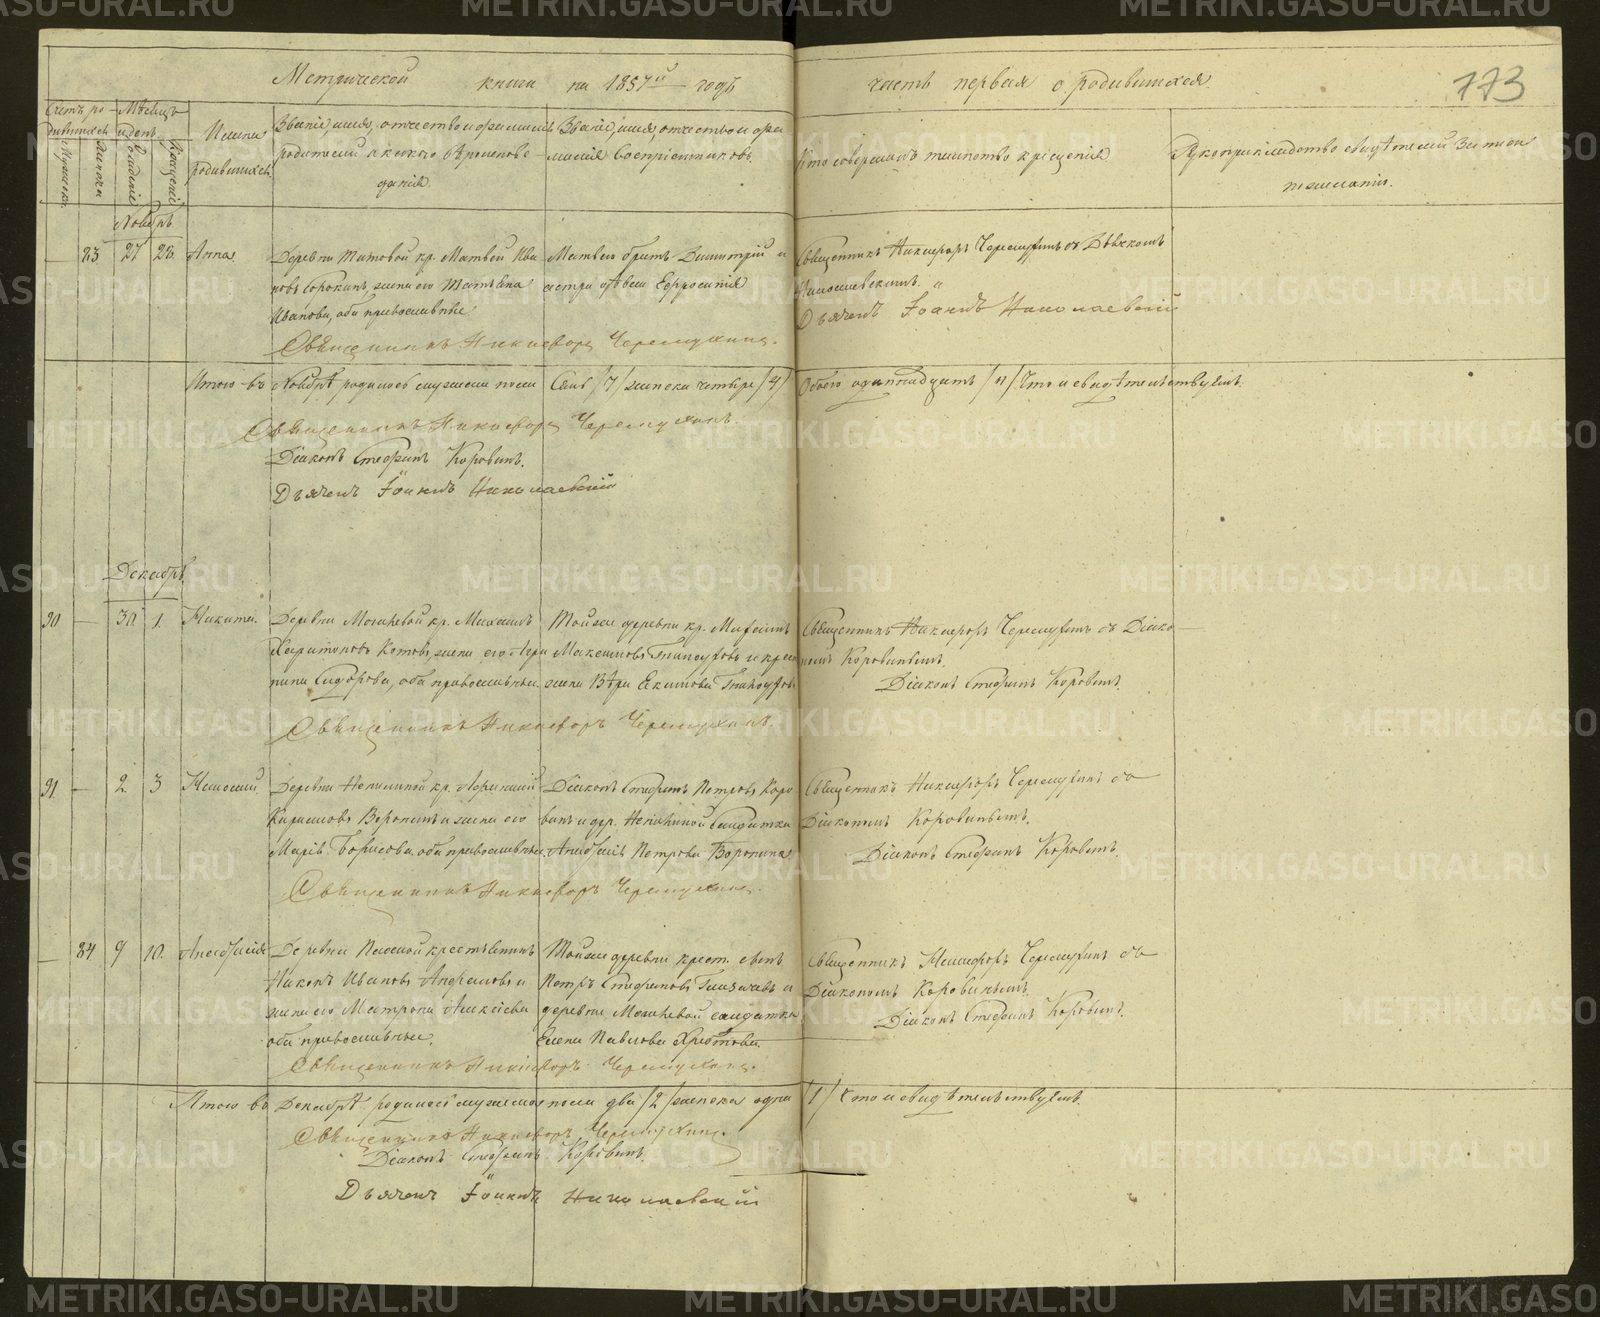 Метрической книги на 1857й годъ часть первая о родившихся.
773
Счетъ ро-
дившихся
Мѣсяцъ
и день.
Мужеска.
Женска
Рожденія
Крещенія
Имена
родившихся.
Званіе, имя, отчество и фамилія
родителей и какого вѣроиспове-
данія
Званіе, имя, отчество и фа-
милія воспріемниковъ.
Кто совершалъ таинство крещенія
Рукоприкладство свидѣтелей записи
по желанію.
Ноябрь
23 27 28. Анна
Деревни Титовой кр. Матвей Ива
новъ Сорокинъ, жена его Татьяна
Иванова, оба православные
Матвея братъ Димитрій и
сестра дѣвка Евфросинія
Священникъ Никифоръ Черемухинъ съ Дьячкомъ
Николаевскимъ.
Дьячекъ Іоаннъ Николаевскій
Священникъ Никифоръ Черемухинъ.
Итого въ Ноябрѣ родилось мужеска пола Семь /7/ женска четыре /4/ Обоего одиннадцать /11/ Что и свидѣтельствуемъ.
Священникъ Никифоръ Черемухинъ.
Діаконъ Стефанъ Коровинъ.
Дьячекъ Іоаннъ Николаевскій
Декабрь
90 — 30 1. Никита.
Деревни Мочневой кр. Михаилъ
Харитоновъ Котовъ, жена его Агри
пина Сидорова, оба православные
Тойже деревни кр.
Максимовъ и крест
жена Вѣра Екимова
Священникъ Никифоръ Черемухинъ съ Діако-
номъ Коровинымъ.
Діаконъ Стефанъ Коровинъ.
Священникъ Никифоръ Черемухинъ.
91 — 2 3 Николай.
Деревни кр.
Воронинъ и жена его
Марія Борисова, оба православные
Діаконъ Стефанъ Петровъ Коро
винъ и дер. Солдатка
Анастасія Петрова Воронина
Священникъ Никифоръ Черемухинъ съ
Діакономъ Коровинымъ.
Діаконъ Стефанъ Коровинъ.
Священникъ Никифоръ Черемухинъ.
— 24 9 10. Анастасія
Деревни крестьянинъ
Никонъ Ивановъ и
жена его Матрона Алексіева
оба православные.
Тойже деревни крест. сынъ
Петръ Стефановъ и
деревни Мочневой солдатка
Елена Павлова
Священникъ Никифоръ Черемухинъ съ
Діакономъ Коровинымъ.
Діаконъ Стефанъ Коровинъ.
Священникъ Никифоръ Черемухинъ.
Итого въ Декабрѣ родилось мужеска пола два /2/ женска одна /1/ Что и свидѣтельствуемъ.
Священникъ Никифоръ Черемухинъ.
Діаконъ Стефанъ Коровинъ.
Дьячекъ Іоаннъ Николаевскій
METRIKI.GASO-URAL.RU